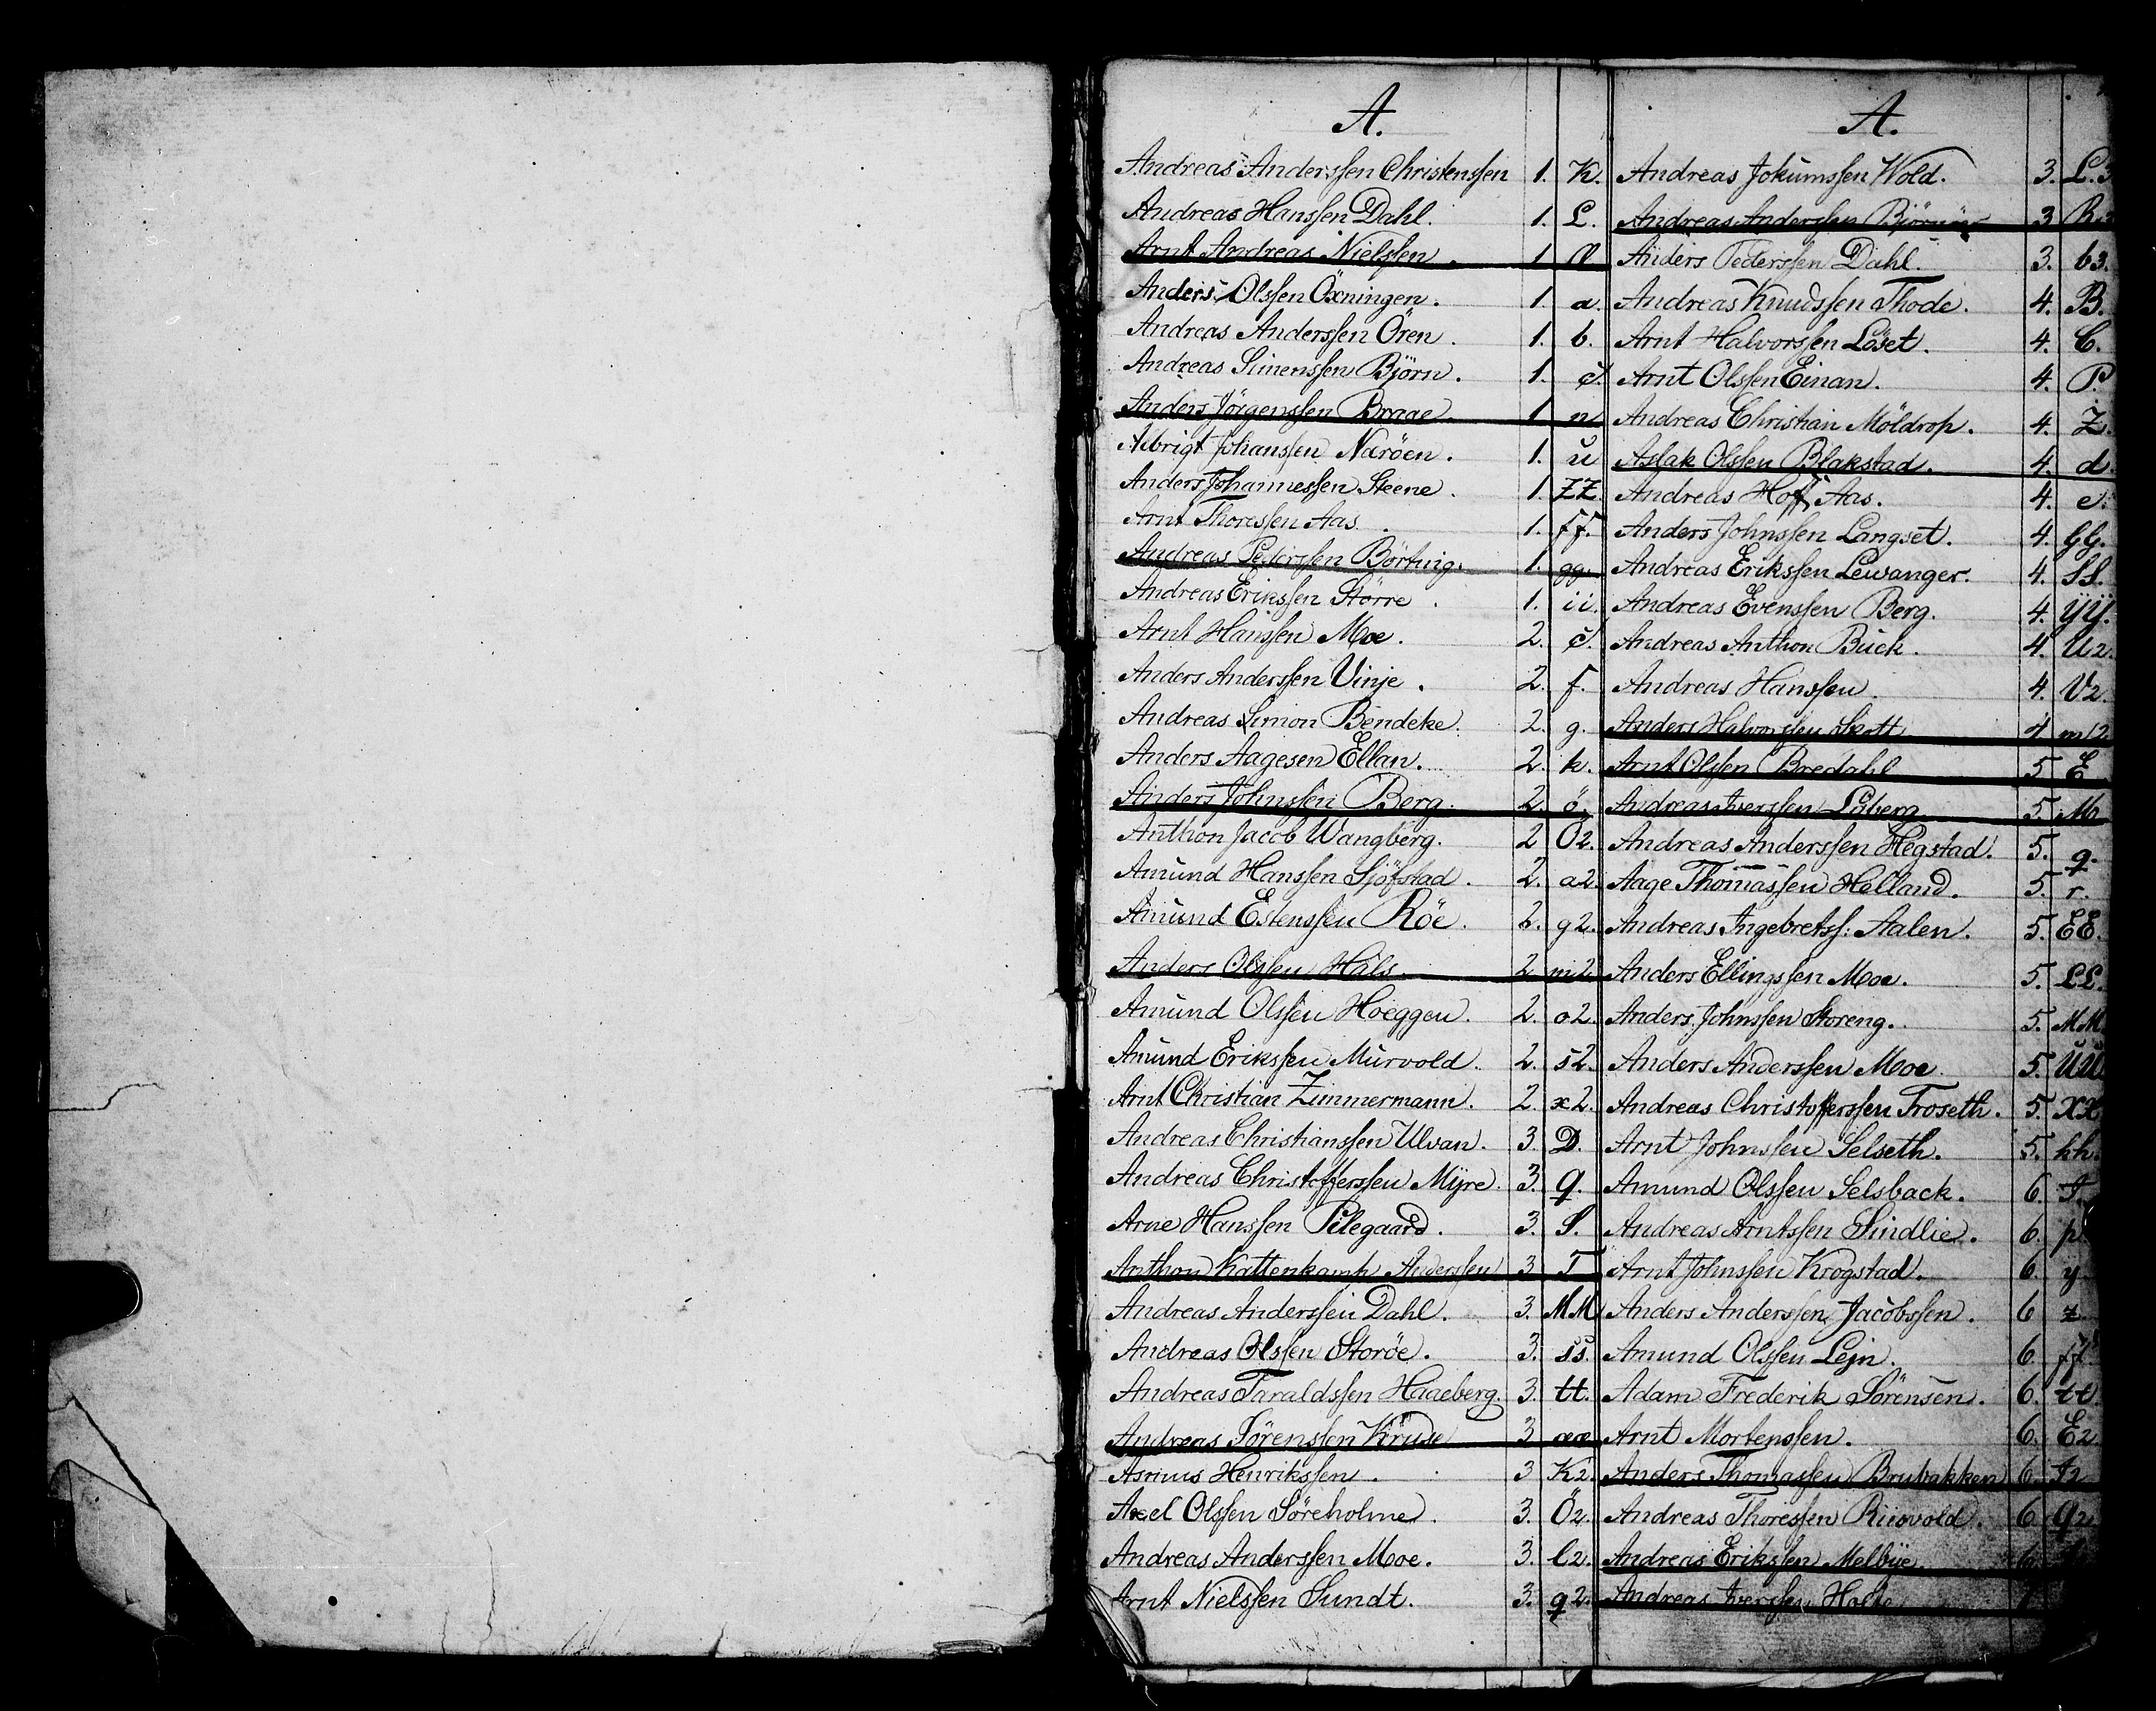 A.
Andreas Anderssen Christenssen 1. K.
Andreas Hanssen Dahl. 1. L.
Arnt Andreas Nielssen. 1
Anders Olssen Öxningen. 1. a.
Andreas Anderssen Ören. 1. b.
Andreas Simenssen Björn. 1.
Anders Jörgenssen Braae. 1 n
Albrigt Johanssen Naröen. 1. u
Anders Johannessen Steene. 1. ZZ.
Arnt Thoressen Aas. 1. ff.
Andreas Pederssen Börting. 1. gg.
Andreas Erikssen Större. 1. ii.
Arnt Hanssen Moe. 2.
Anders Anderssen Vinje. 2. f.
Andreas Simon Bendeke. 2. g.
Anders Aagesen Ellan. 2. k.
Anders Johnssen Berg. 2. ö.
Anthon Jacob Wangberg. 2 O2.
Amund Hanssen Sjöfstad. 2. a2.
Amund Estenssen Röe. 2. g2.
Anders Olssen Hals. 2 m2
Amund Olssen Hoeggen. 2. o2.
Amund Erikssen Murvold. 2. s2.
Arnt Christian Zimmermann. 2. x2.
Andreas Christianssen Ulvan. 3. D.
Andreas Christofferssen Myre. 3. Q.
Arne Hanssen Pilegaard. 3. S.
Anthon Kattenkamp Anderssen 3 T
Andreas Anderssen Dahl. 3. MM
Andreas Olssen Storöe. 3. ss.
Andreas Taraldssen Haaeberg. 3. tt.
Andreas Sörenssen Kruse 3 ææ
Asrius Henrikssen. 3 K2.
Axel Olssen Söreholme. 3. Ö2.
Andreas Anderssen Moe. 3. l2.
Arnt Nielssen Sundt. 3. q2.
A.
Andreas Jokumssen Wold. 3. L.3
Andreas Anderssen Björnör 3 R.3
Anders Pederssen Dahl. 3. b3.
Andreas Knudssen Thode. 4. B.
Arnt Halvorssen Löset. 4. C.
Arnt Olssen Einan. 4. P.
Andreas Christian Möldrop. 4. Z.
Aslak Olssen Blakstad. 4. d.
Andreas Hoff Aas. 4. e.
Anders Johnssen Langset. 4. GG.
Andreas Erikssen Lewanger. 4. SS.
Andreas Evenssen Berg. 4. YY.
Andreas Anthon Buck. 4. U2.
Andreas Hanssen. 4. V2.
Anders Halvorssen Skott 4 m2
Arnt Olssen Bredahl 5 E
Andreas Iverssen Löberg 5. M
Andreas Anderssen Hegstad. 5. q.
Aage Thomassen Halland. 5. r.
Andreas Ingebretss: Aalen. 5. EE.
Anders Ellingssen Moe. 5. LL.
Anders Johnssen Storeng. 5. MM.
Anders Anderssen Moe 5. UU
Andreas Christofferssen Troseth. 5. XX
Arnt Johnssen Selseth. 5. hh.
Amund Olssen Selsback. 6. T.
Andreas Arntssen Sindlie. 6. p.
Arnt Johnssen Krogstad. 6. y
Anders Anderssen Jacobssen. 6 z
Amund Olssen Lejn. 6. ff.
Adam Frederik Sörensen. 6. tt.
Arnt Mortenssen. 6. E2
Anders Thomassen Brubakken 6. I2
Andreas Thoressen Riiovold. 6 Q2
Andreas Erikssen Melbye. 6.
Andreas Iverssen Holte 7